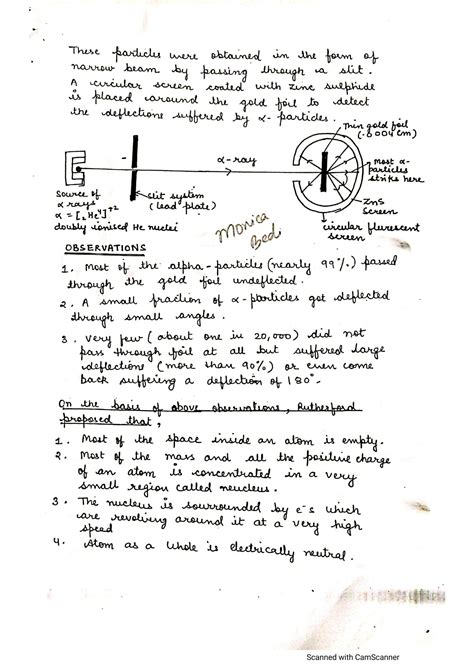 These particles were obtained in the form of
narrow beam by passing through a slit.
A circular screen coated with zinc sulphide
is placed around the gold foil to detect
the deflections suffered by α-particles.
Thin gold foil
(.0004 cm)
α-ray
Most α-
particles
strike here
Source of
α rays
α = [₂He⁴]⁺²
doubly ionised He nuclei
slit system
(lead plate)
ZnS
screen
circular flurescent
screen
Monica
Bedi
OBSERVATIONS
1. Most of the alpha-particles (nearly 99%) passed
through the gold foil undeflected.
2. A small fraction of α-particles got deflected
through small angles.
3. Very few (about one in 20,000) did not
pass through foil at all but suffered large
deflections (more than 90%) or even come
back suffering a deflection of 180°.
On the basis of above observations, Rutherford
proposed that,
1. Most of the space inside an atom is empty.
2. Most of the mass and all the positive charge
of an atom is concentrated in a very
small region called neucleus.
3. The nucleus is sourrounded by e⁻s which
are revolving around it at a very high
speed
4. Atom as a whole is electrically neutral.
Scanned with CamScanner